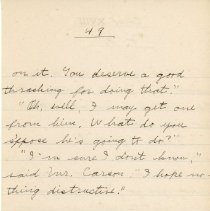 49
on it. You deserve a good
thrashing for doing that."
"Oh, well, I may get one
from him. What do you
s'pose he's going to do?"
"I'm sure I don't know,"
said Mr. Carson. "I hope no-
thing distructive."